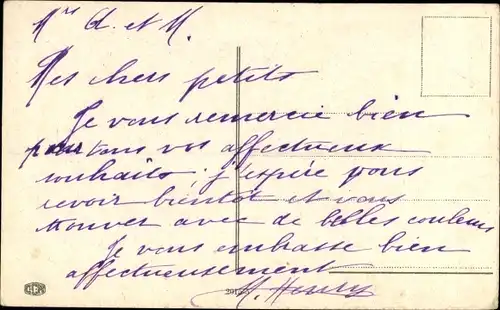 Mrs A. et M.
Mes chers petits
Je vous remercie bien
pour tous vos affectueux
souhaits, j'espère vous
revoir bientôt et vous
trouver avec de belles couleurs
Je vous embrasse bien
affectueusement
M. Henry